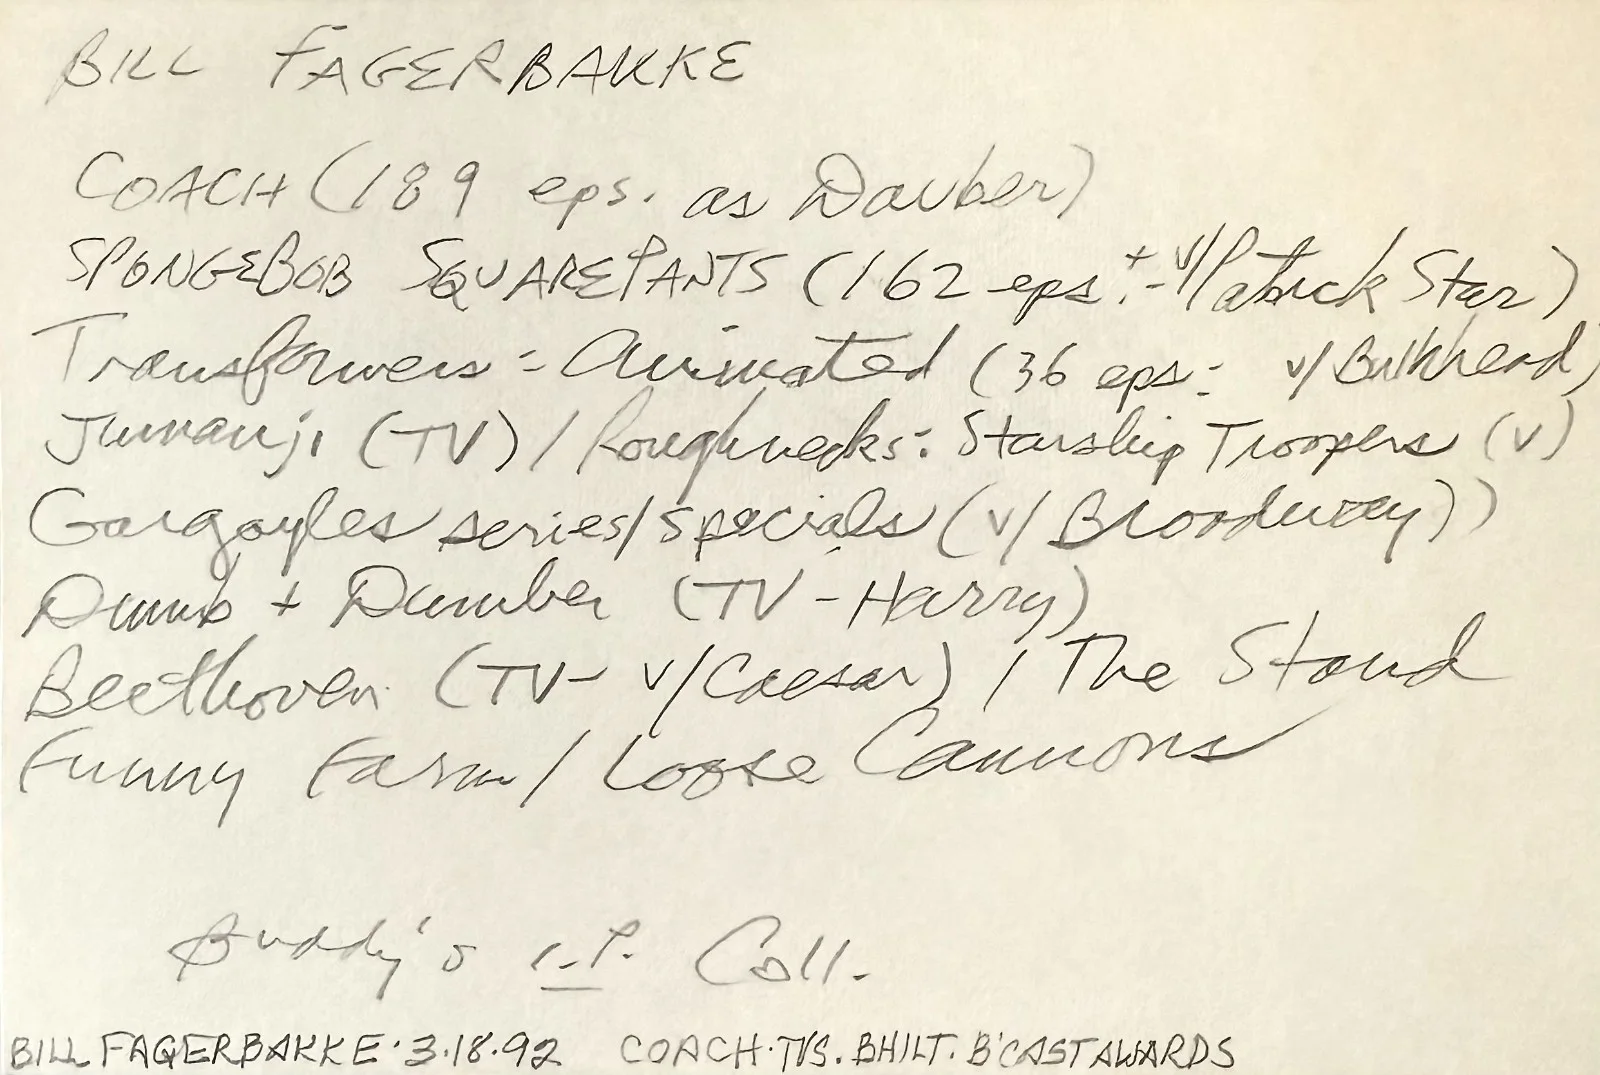 BILL FAGERBAKKE
COACH (189 eps. as Dauber)
SPONGEBOB SQUAREPANTS (162 eps.+ - v/Patrick Star)
Transformers - Animated (36 eps - v/Bulkhead)
Jumanji (TV) / Roughnecks: Starship Troopers (v)
Gargoyles series/specials (v/Broadway))
Dumb + Dumber (TV - Harry)
Beethoven (TV - v/Caesar) / The Stand
Funny Farm / Loose Cannons
Buddy's I.P. Coll.
BILL FAGERBAKKE · 3.18.92 COACH · TVS. BHILT. B'CAST AWARDS